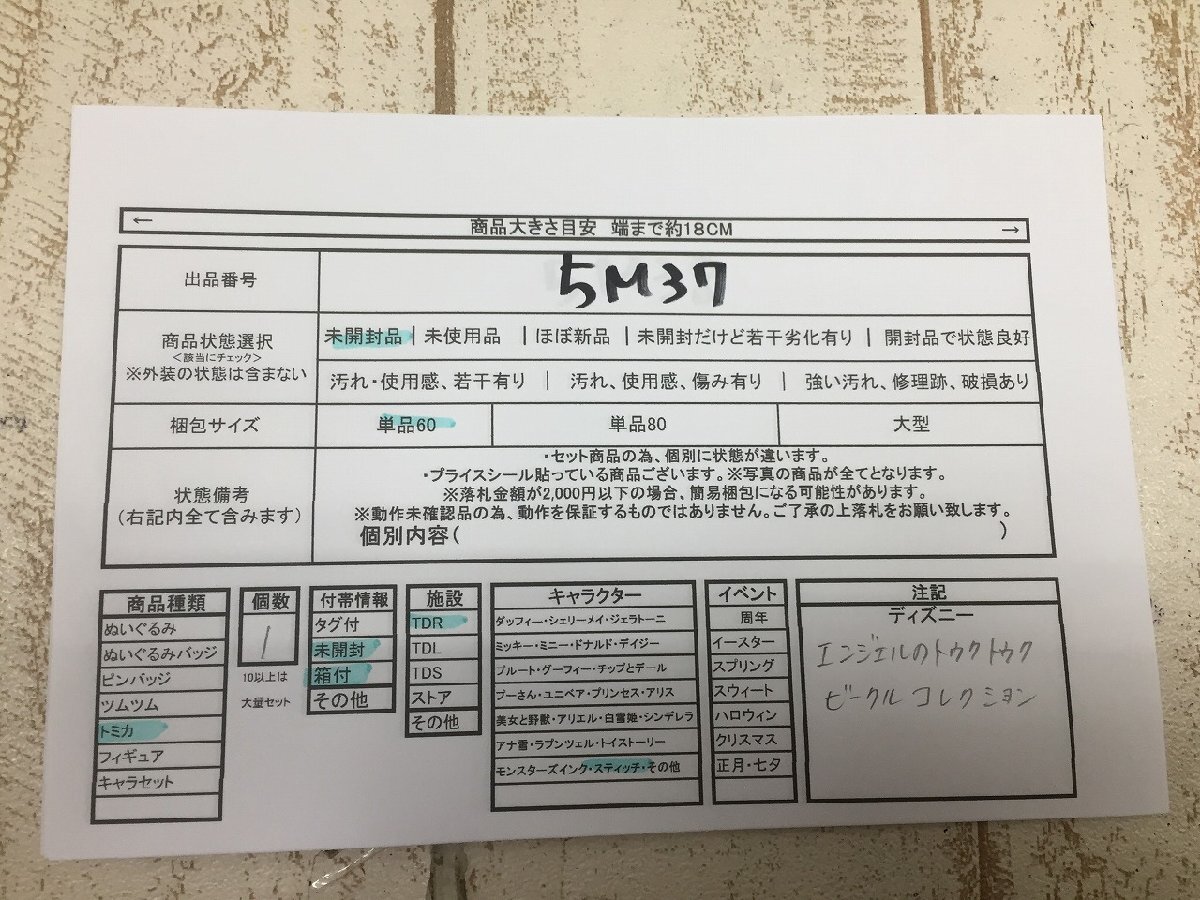 ← 商品大きさ目安 端まで約18CM →
出品番号 5M37
商品状態選択
<該当にチェック>
※外装の状態は含まない
未開封品 | 未使用品 | ほぼ新品 | 未開封だけど若干劣化有り | 開封品で状態良好
汚れ・使用感、若干有り | 汚れ、使用感、傷み有り | 強い汚れ、修理跡、破損あり
梱包サイズ 単品60 単品80 大型
状態備考
(右記内全て含みます)
・セット商品の為、個別に状態が違います。
・プライスシール貼っている商品ございます。※写真の商品が全てとなります。
※落札金額が2,000円以下の場合、簡易梱包になる可能性があります。
※動作未確認品の為、動作を保証するものではありません。ご了承の上落札をお願い致します。
個別内容( )
商品種類
ぬいぐるみ
ぬいぐるみバッジ
ピンバッジ
ツムツム
トミカ
フィギュア
キャラセット
個数
1
10以上は
大量セット
付帯情報
タグ付
未開封
箱付
その他
施設
TDR
TDL
TDS
ストア
その他
キャラクター
ダッフィー・シェリーメイ・ジェラトーニ
ミッキー・ミニー・ドナルド・デイジー
プルート・グーフィー・チップとデール
プーさん・ユニベア・プリンセス・アリス
美女と野獣・アリエル・白雪姫・シンデレラ
アナ雪・ラプンツェル・トイストーリー
モンスターズインク・スティッチ・その他
イベント
周年
イースター
スプリング
スウィート
ハロウィン
クリスマス
正月・七夕
注記
ディズニー
エンジェルのトゥクトゥク
ビークルコレクション